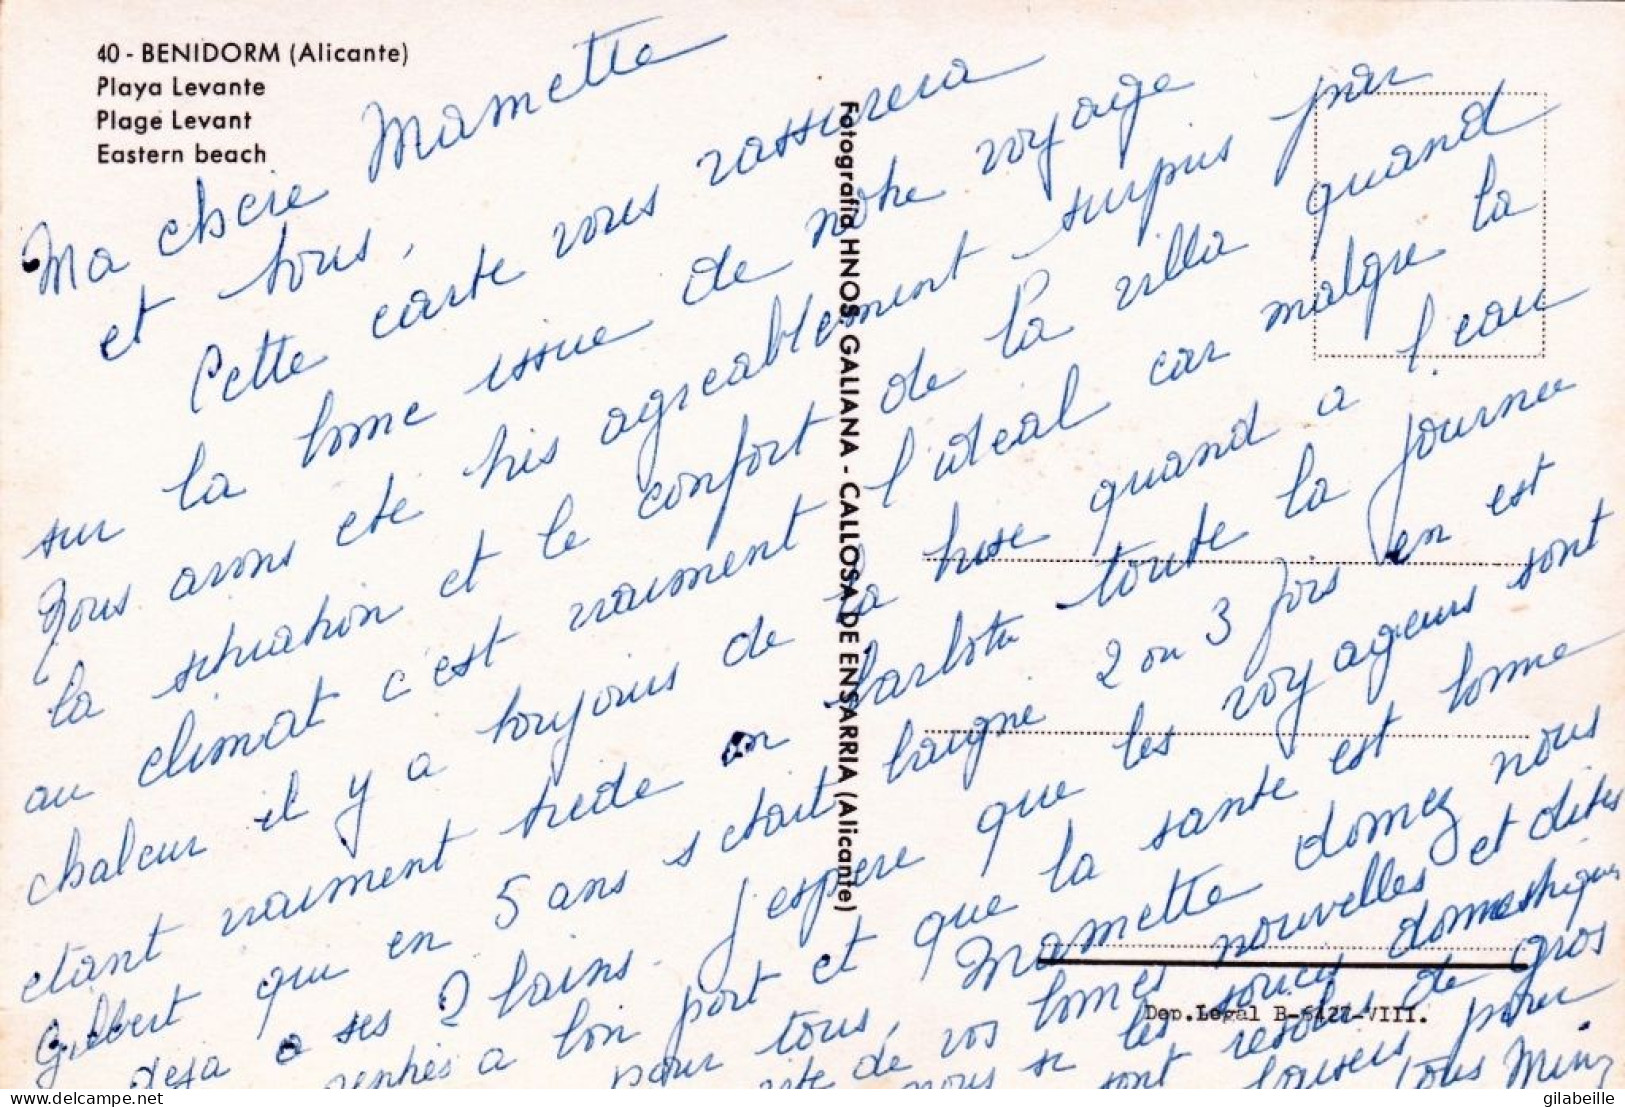 40 - BENIDORM (Alicante)
Playa Levante
Plage Levant
Eastern beach
Ma chère Mamette
et tous,
Cette carte vous rassurera
sur la bonne issue de notre voyage
Nous avons eté tres agreablement surpris par
la situation et le confort de la villa quand
au climat c'est vraiment l'ideal car malgre la
chaleur il y a toujours de la brise quand a l'eau
etant vraiment tiede on barbotte toute la journee
Gilbert qui en 5 ans s'etait baigné 2 ou 3 fois en est
deja a ses 2 bains. J'espere que les voyageurs sont
rentrés a bon port et que la santé est bonne
pour tous, Mamette donnez nous
vite de vos bonnes nouvelles et dites
nous si les soucis domestiques
sont resolus de gros
baisers pour
tous Minj
Fotografia HNOS. GALIANA - CALLOSA DE ENSARRIA (Alicante)
Dep. Legal B-6427-VIII.
gilabeille